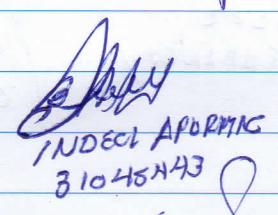 INDECI APURIMAC
31045443